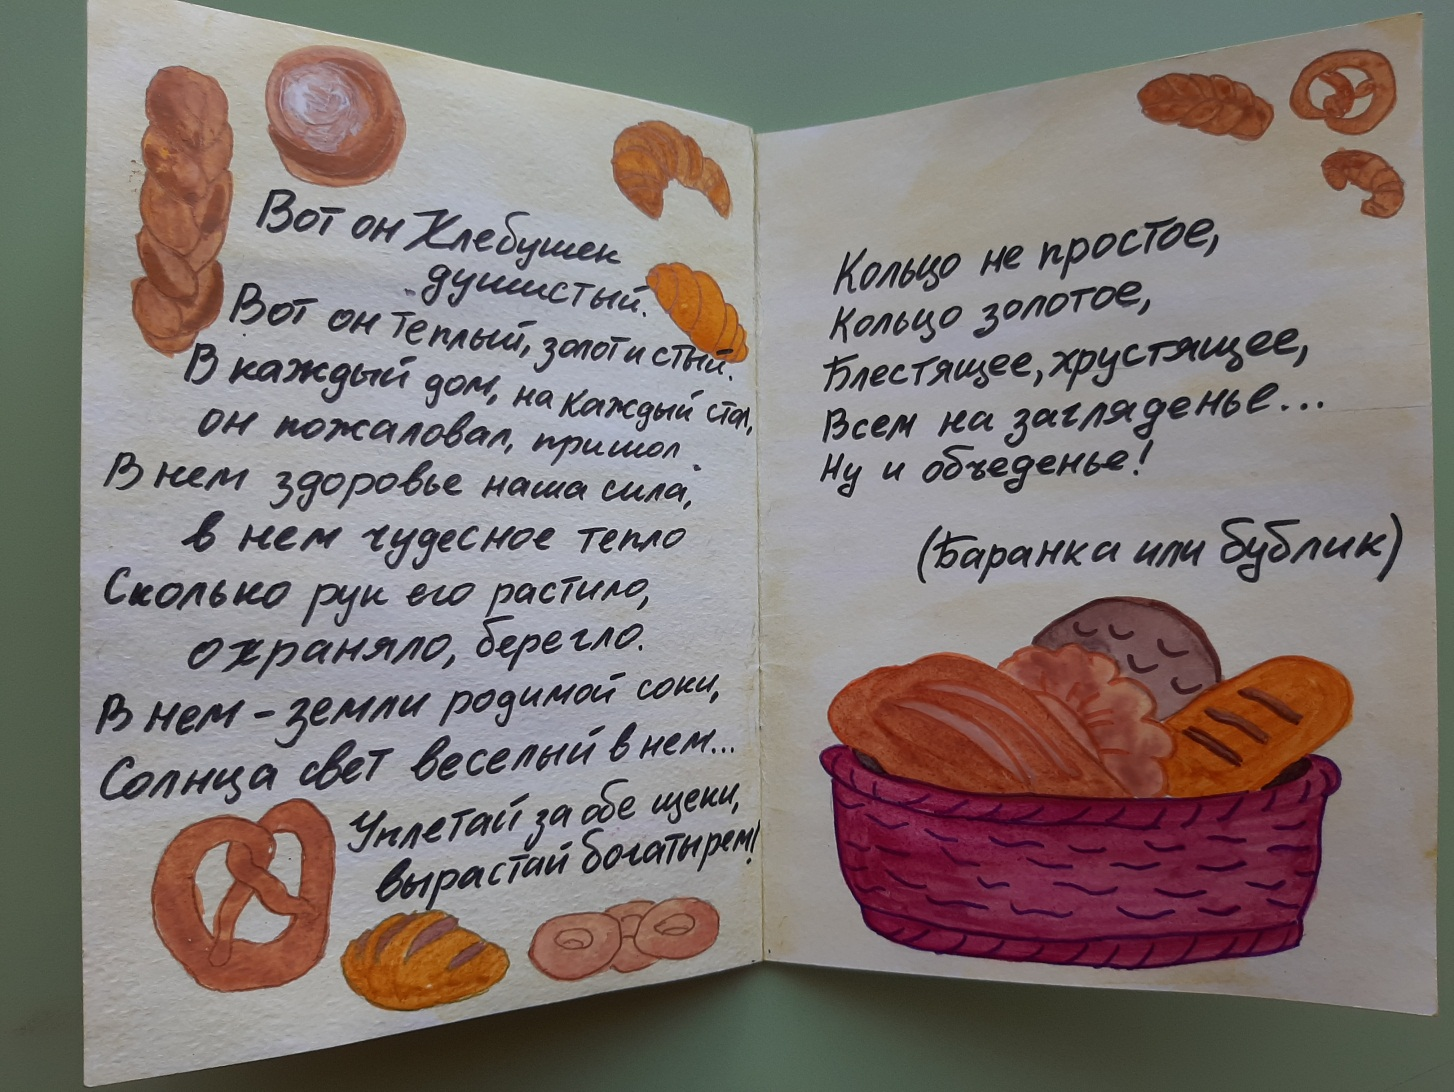 Вот он Хлебушек
душистый.
Вот он теплый, золотистый.
В каждый дом, на каждый стол,
он пожаловал, пришол.
В нем здоровье наша сила,
в нем чудесное тепло
Сколько рук его растило,
охраняло, берегло.
В нем - земли родимой соки,
Солнца свет веселый в нем...
Уплетай за обе щеки,
вырастай богатырем!
Кольцо не простое,
Кольцо золотое,
Блестящее, хрустящее,
Всем на загляденье...
Ну и объеденье!
(Баранка или бублик)